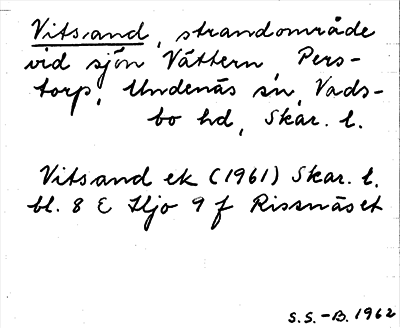 Vitsand, strandområde
vid sjön Vättern, Pers-
torp, Undenäs sn, Vads-
bo hd, Skar. l.
Vitsand ek (1961) Skar. l.
bl. 8 E Hjo 9 f Rissnäset
S.S.-B. 1962